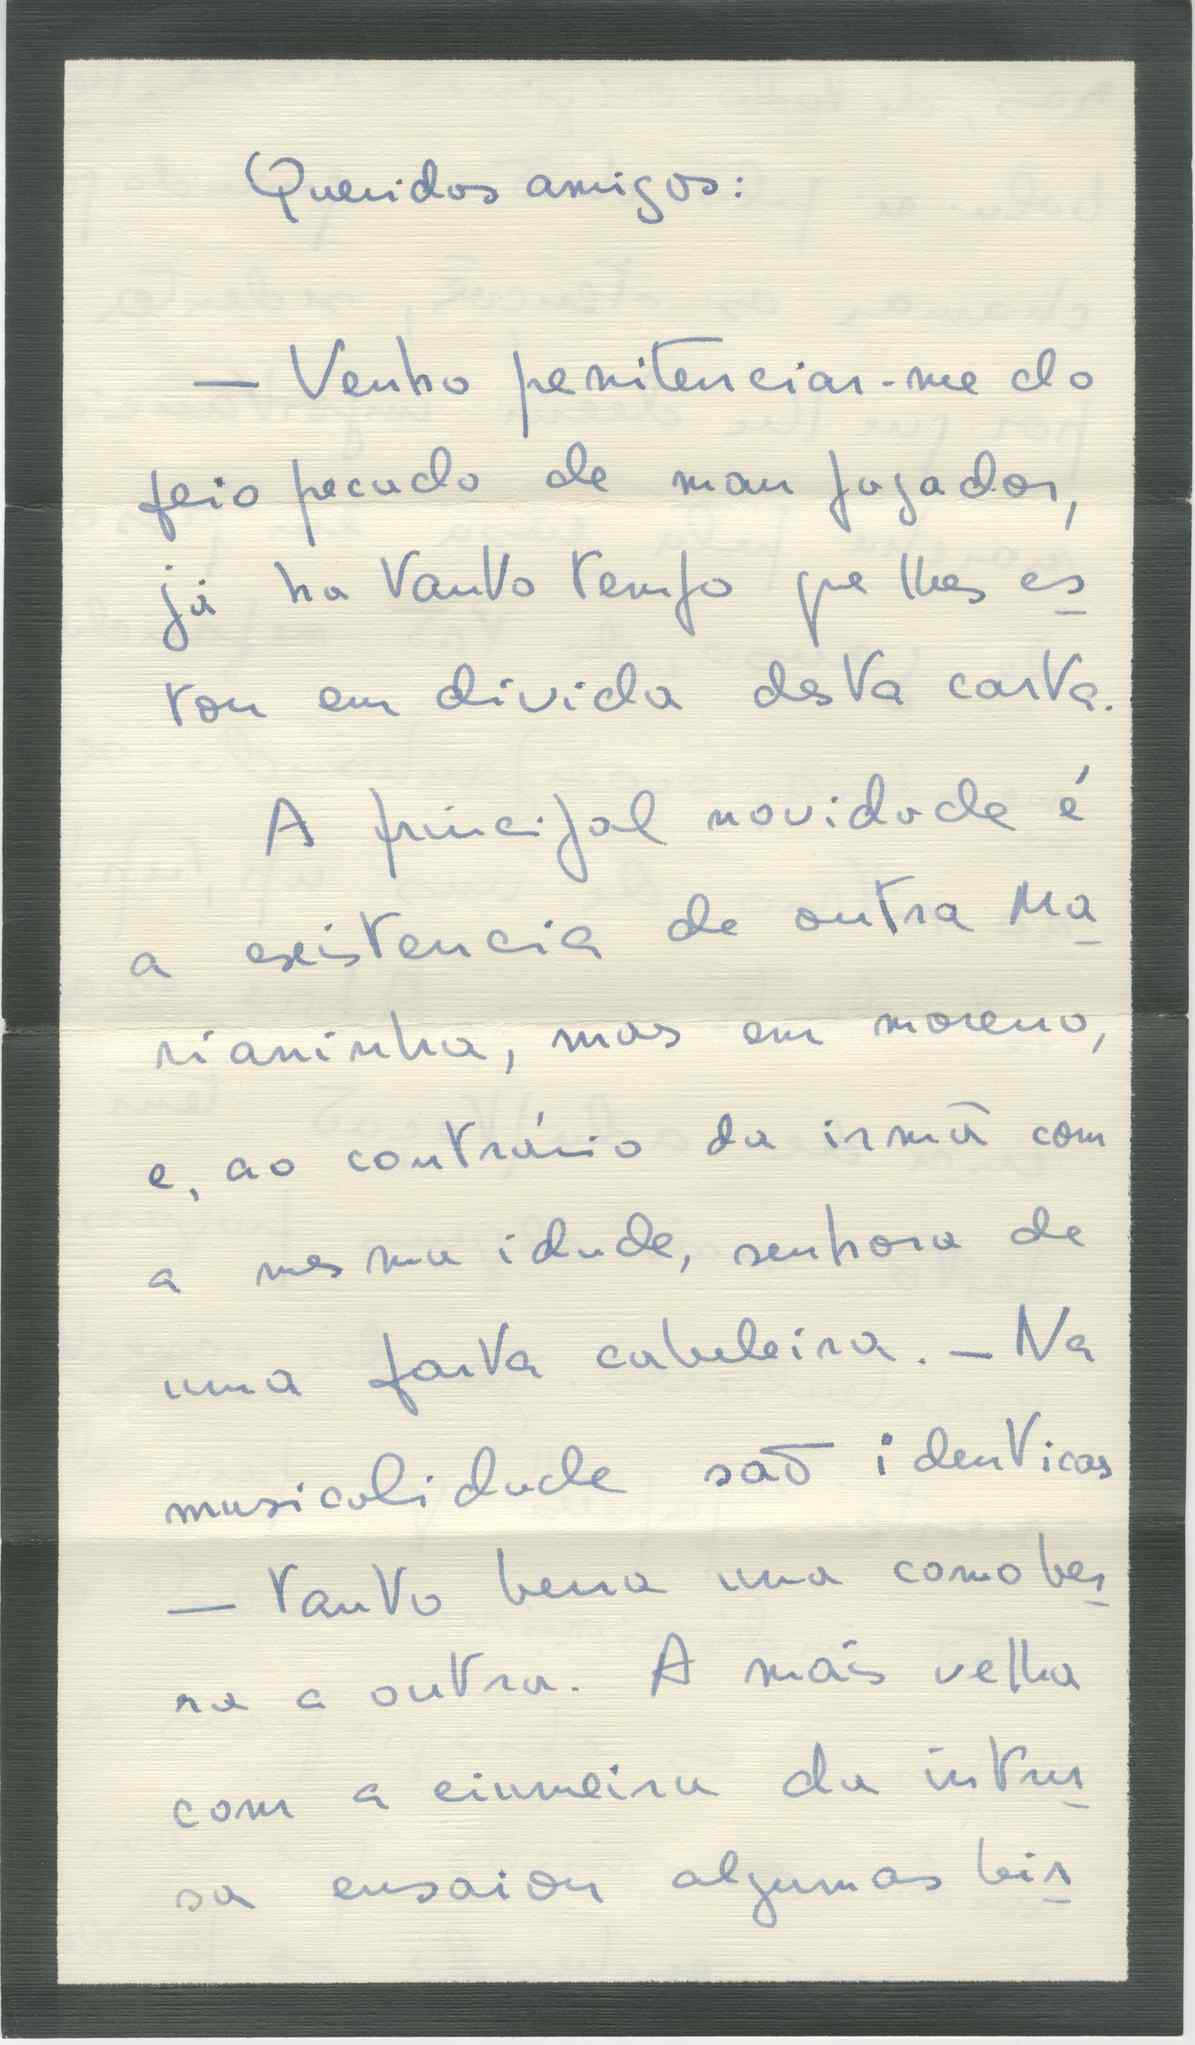 Queridos amigos:
— Venho penitenciar-me do
feio pecado de mau jogador,
já ha tanto tempo que lhes es
tou em divida desta carta.
A principal novidade é
a existencia de outra Ma
rianinha, mas em moreno,
e, ao contrário da irmã com
a mesma idade, senhora de
uma farta cabeleira. — Na
musicalidade são identicas
— tanto berra uma como ber
ra a outra. A mais velha
com a ciumeira da intru
sa ensaiou algumas bir